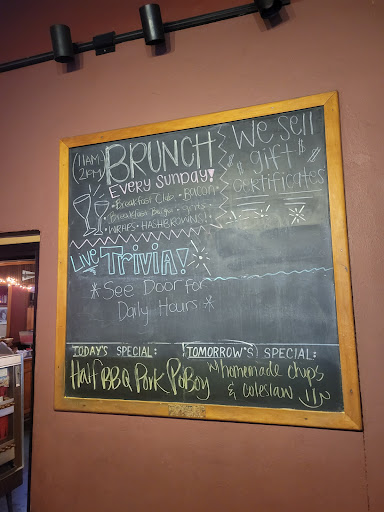 (11AM-
2PM)
BRUNCH
EVERY SUNDAY!
• Breakfast Club • Bacon
• WRAPS • HASHBROWNS!
We Sell
$ gift $
Certificates
Live TRIVIA!
*See Door for
Daily Hours*
TODAY'S SPECIAL:
TOMORROW'S SPECIAL:
Half BBQ Pork PoBoy
w/ homemade chips
& coleslaw